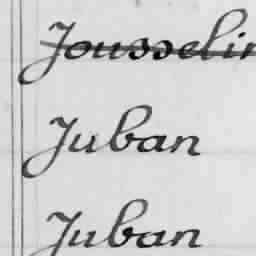 Jousselin
Juban
Juban